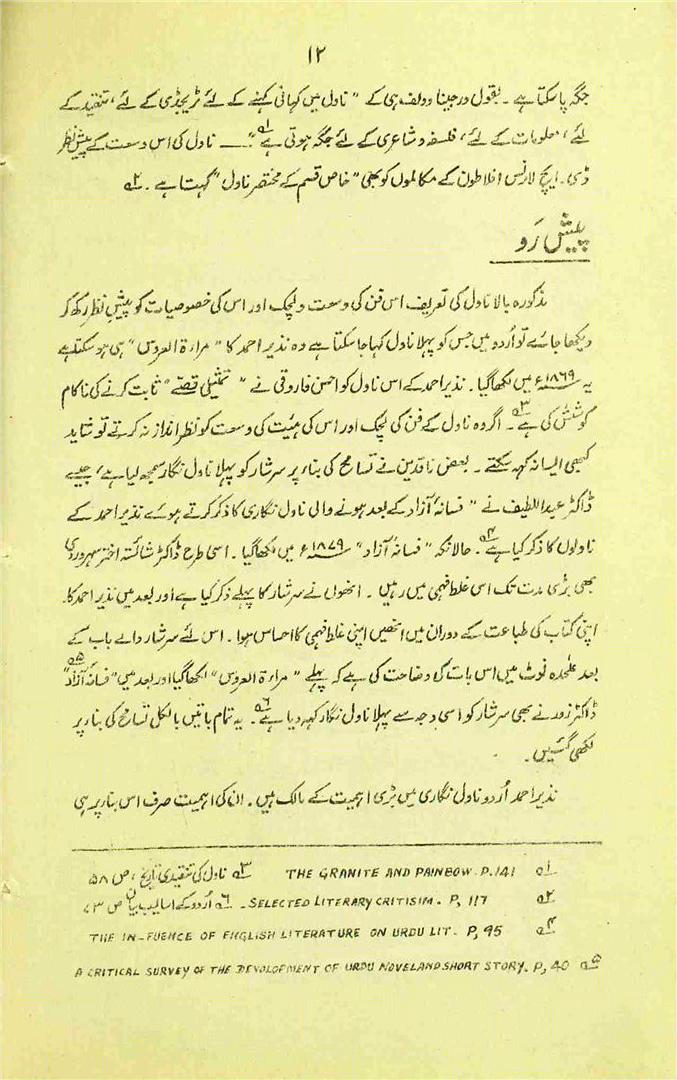 ۱۲
جگہ پا سکتا ہے ۔ بقول ورجینا وولف ہی کے " ناول میں کہانی کہنے کے لئے ٹریجڈی کے لئے ، تنقید کے
لئے ، معلومات کے لئے ، فلسفہ و شاعری کے لئے جگہ ہوتی ہے "۱؎ ۔۔۔ ناول کی اس وسعت کے پیش نظر
ڈی ۔ ایچ لارنس افلاطون کے مکالموں کو بھی " خاص قسم کے مختصر ناول " کہتا ہے ۔ ۲؎
پیش رَو
مذکورہ بالا ناول کی تعریف اس فن کی وسعت و لچک اور اس کی خصوصیات کو پیش نظر رکھ کر
دیکھا جائے تو اُردو میں جس کو پہلا ناول کہا جا سکتا ہے وہ نذیر احمد کا " مراۃ العروس " ہی ہو سکتا ہے
یہ ۱۸۶۹ء میں لکھا گیا ۔ نذیر احمد کے اس ناول کو احسن فاروقی نے " تمثیلی قصّے " ثابت کرنے کی ناکام
کوشش کی ہے ۳؎ ۔ اگر وہ ناول کے فن کی لچک اور اس کی ہیٔت کی وسعت کو نظر انداز نہ کرتے تو شاید
کبھی ایسا نہ کہہ سکتے ۔ بعض ناقدین نے تسامح کی بناء پر سرشار کو پہلا ناول نگار سمجھ لیا ہے ، جیسے
ڈاکٹر عبداللطیف نے " فسانۂ آزاد کے بعد ہونے والی ناول نگاری کا ذکر کرتے ہوئے نذیر احمد کے
ناولوں کا ذکر کیا ہے ۴؎ ۔ حالانکہ " فسانۂ آزاد " ۱۸۷۹ء میں لکھا گیا ۔ اسی طرح ڈاکٹر شائستہ اختر سہروردی
بھی بڑی مدت تک اسی غلط فہمی میں رہیں ۔ انھوں نے سرشار کا پہلے ذکر کیا ہے اور بعد میں نذیر احمد کا ۔
اپنی کتاب کی طباعت کے دوران میں انھیں اپنی غلط فہمی کا احساس ہوا ۔ اس لئے سرشار والے باب کے
بعد علٰحدہ نوٹ میں اس بات کی وضاحت کی ہے کہ پہلے " مراۃ العروس " لکھا گیا اور بعد میں " فسانۂ آزاد " ۵؎
ڈاکٹر زور نے بھی سرشار کو اسی وجہ سے پہلا ناول نگار کہہ دیا ہے ۶؎ ۔ یہ تمام باتیں بالکل تسامح کی بناء پر
لکھی گئیں ۔
نذیر احمد اُردو ناول نگاری میں بڑی اہمیت کے مالک ہیں ۔ ان کی اہمیت صرف اس بناء پر ہی
۱؎ THE GRANITE AND PAINBOW. P. 141 ۳؎ ناول کی تنقیدی تاریخ ، ص ۵۸
۲؎ SELECTED LITERARY CRITISIM. P, 117 ۶؎ اُردو کے اسالیب بیان ص ۷۳
۴؎ THE IN-FUENCE OF ENGLISH LITERATURE ON URDU LIT. P, 95
۵؎ A CRITICAL SURVEY OF THE DEVOLOPMENT OF URDU NOVELAND SHORT STORY. P, 40